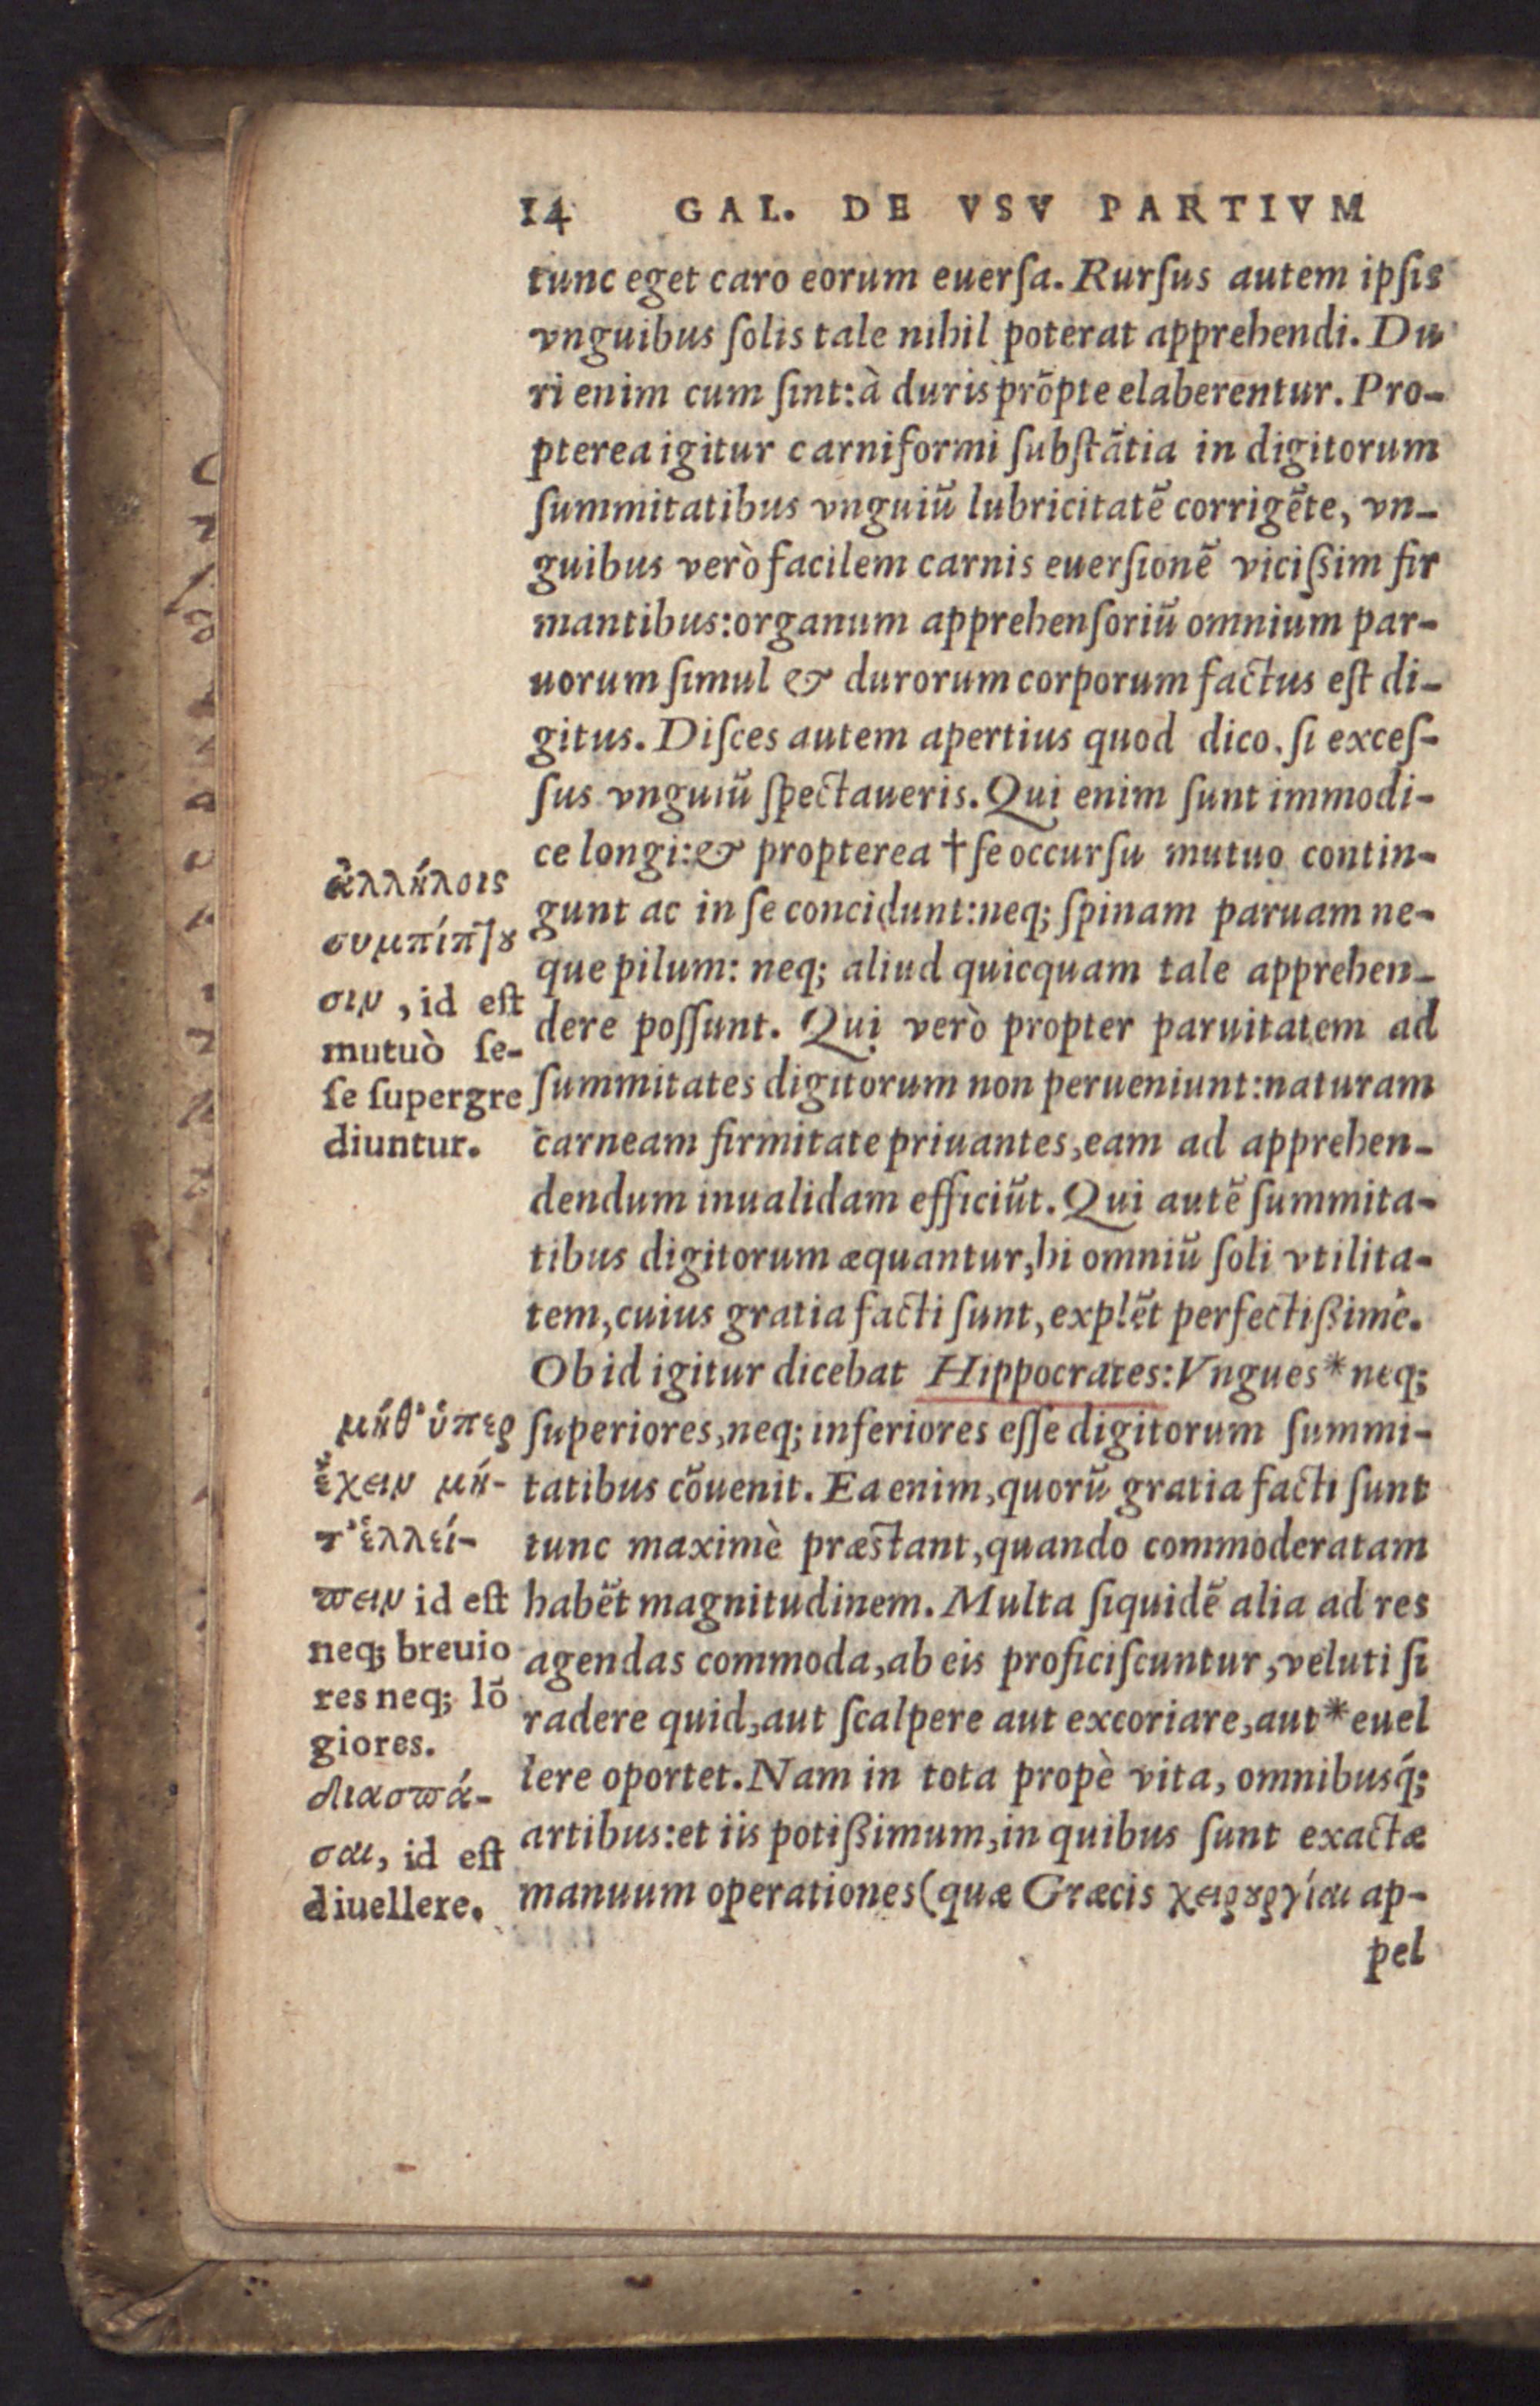 14 GAL. DE VSV PARTIVM
tunc eget caro eorum euerſa. Rurſus autem ipſis
vnguibus ſolis tale nihil poterat apprehendi. Du
ri enim cum ſint: à duris prõpte elaberentur. Pro-
pterea igitur carniformi ſubſtãtia in digitorum
ſummitatibus vnguiũ lubricitatẽ corrigẽte, vn-
guibus verò facilem carnis euerſionẽ viciſsim fir
mantibus: organum apprehenſoriũ omnium par-
uorum ſimul & durorum corporum factus eſt di-
gitus. Diſces autem apertius quod dico. ſi exceſ-
ſus vnguiũ ſpectaueris. Qui enim ſunt immodi-
ce longi: & propterea † ſe occurſu mutuo contin-
gunt ac in ſe concidunt: neq; ſpinam paruam ne-
que pilum: neq; aliud quicquam tale apprehen-
dere poſſunt. Qui verò propter paruitatem ad
ſummitates digitorum non perueniunt: naturam
carneam firmitate priuantes, eam ad apprehen-
dendum inualidam efficiũt. Qui autẽ ſummita-
tibus digitorum æquantur, hi omniũ ſoli vtilita-
tem, cuius gratia facti ſunt, explẽt perfectiſsimè.
Ob id igitur dicebat Hippocrates: Vngues * neq;
ſuperiores, neq; inferiores eſſe digitorum ſummi-
tatibus cõuenit. Ea enim, quorũ gratia facti ſunt
tunc maximè præſtant, quando commoderatam
habẽt magnitudinem. Multa ſiquidẽ alia ad res
agendas commoda, ab eis proficiſcuntur, veluti ſi
radere quid, aut ſcalpere aut excoriare, aut * euel
lere oportet. Nam in tota propè vita, omnibusq́;
artibus: et iis potiſsimum, in quibus ſunt exactæ
manuum operationes (quæ Græcis χειρȣργίαι ap-
pel
ἀλλήλοις
συμπίπτȣ
σιν, id eſt
mutuò ſe-
ſe ſupergre
diuntur.
μήθ' ὑπερ
έχειν μή-
τ' ἐλλεί-
ϖειν id eſt
neq; breuio
res neq; lõ
giores.
διασϖά-
σαι, id eſt
diuellere.